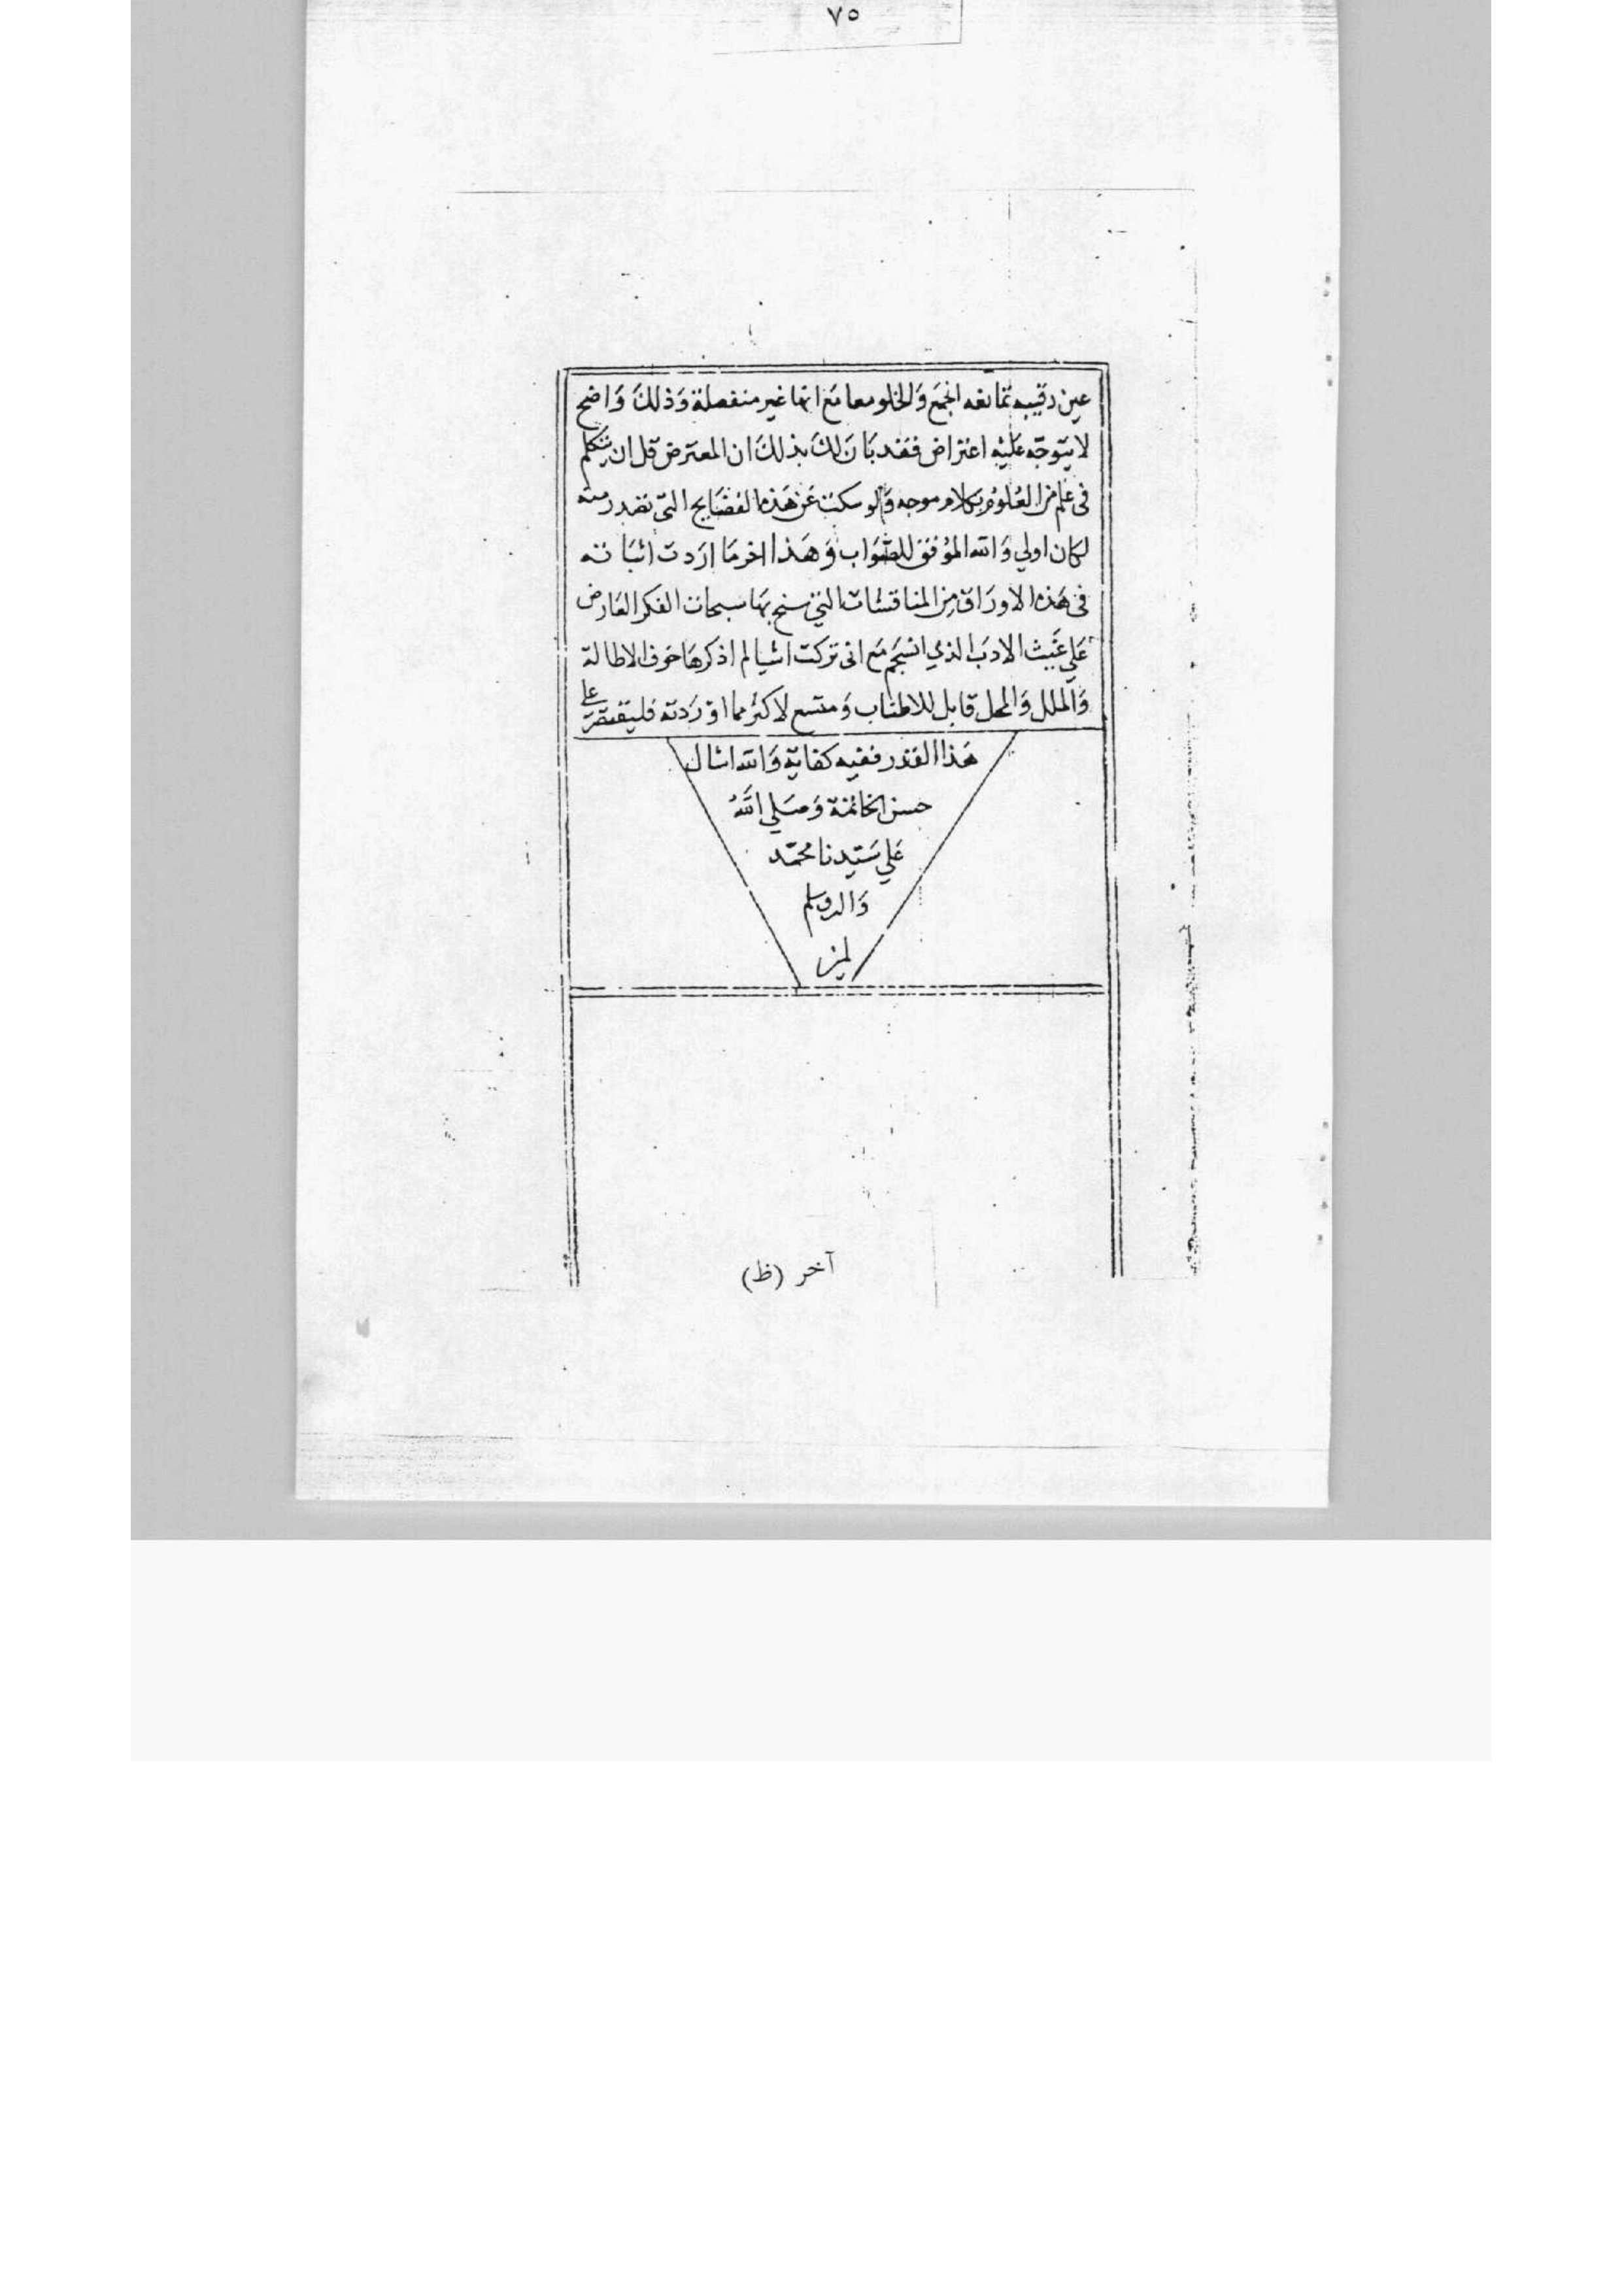 ٧٥
عين رقيبه تمانعه الجمع وَالخلو معا مَع انها غير منفصلة وَذلكَ وَاضح
لا يتوجّه عَليْه اعتراض فقد بَانَ لكَ بذلكَ ان المعترض قل ان يتكلم
فى علم من العُلوُم بكلام موجه وَلو سكت عَن هَذه الفضَايح التى تصدر منه
لكان اولي وَالله الموُفق للصّوَاب وَهَذا اخر مَا ارَدت اثبَاته
فى هَذه الاورَاق من المناقشات التي سنح بهَا سبحات الفكر العَارض
عَلي غَيث الادبَ الذي انسَجَم مَع انى تركت اشيا لم اذكرهَا خوف الاطالة
وَالملل وَالمحل قابل للاطناب وَمتسع لاكثر مما اوْرَدته فليقتصَر على
هَذا القدر ففيه كفايَة وَالله اسال
حسن الخاتمة وَصَلي اللّهُ
عَلي سَيّدنا محمّد
وَاله وسلم
آخر (ظ)